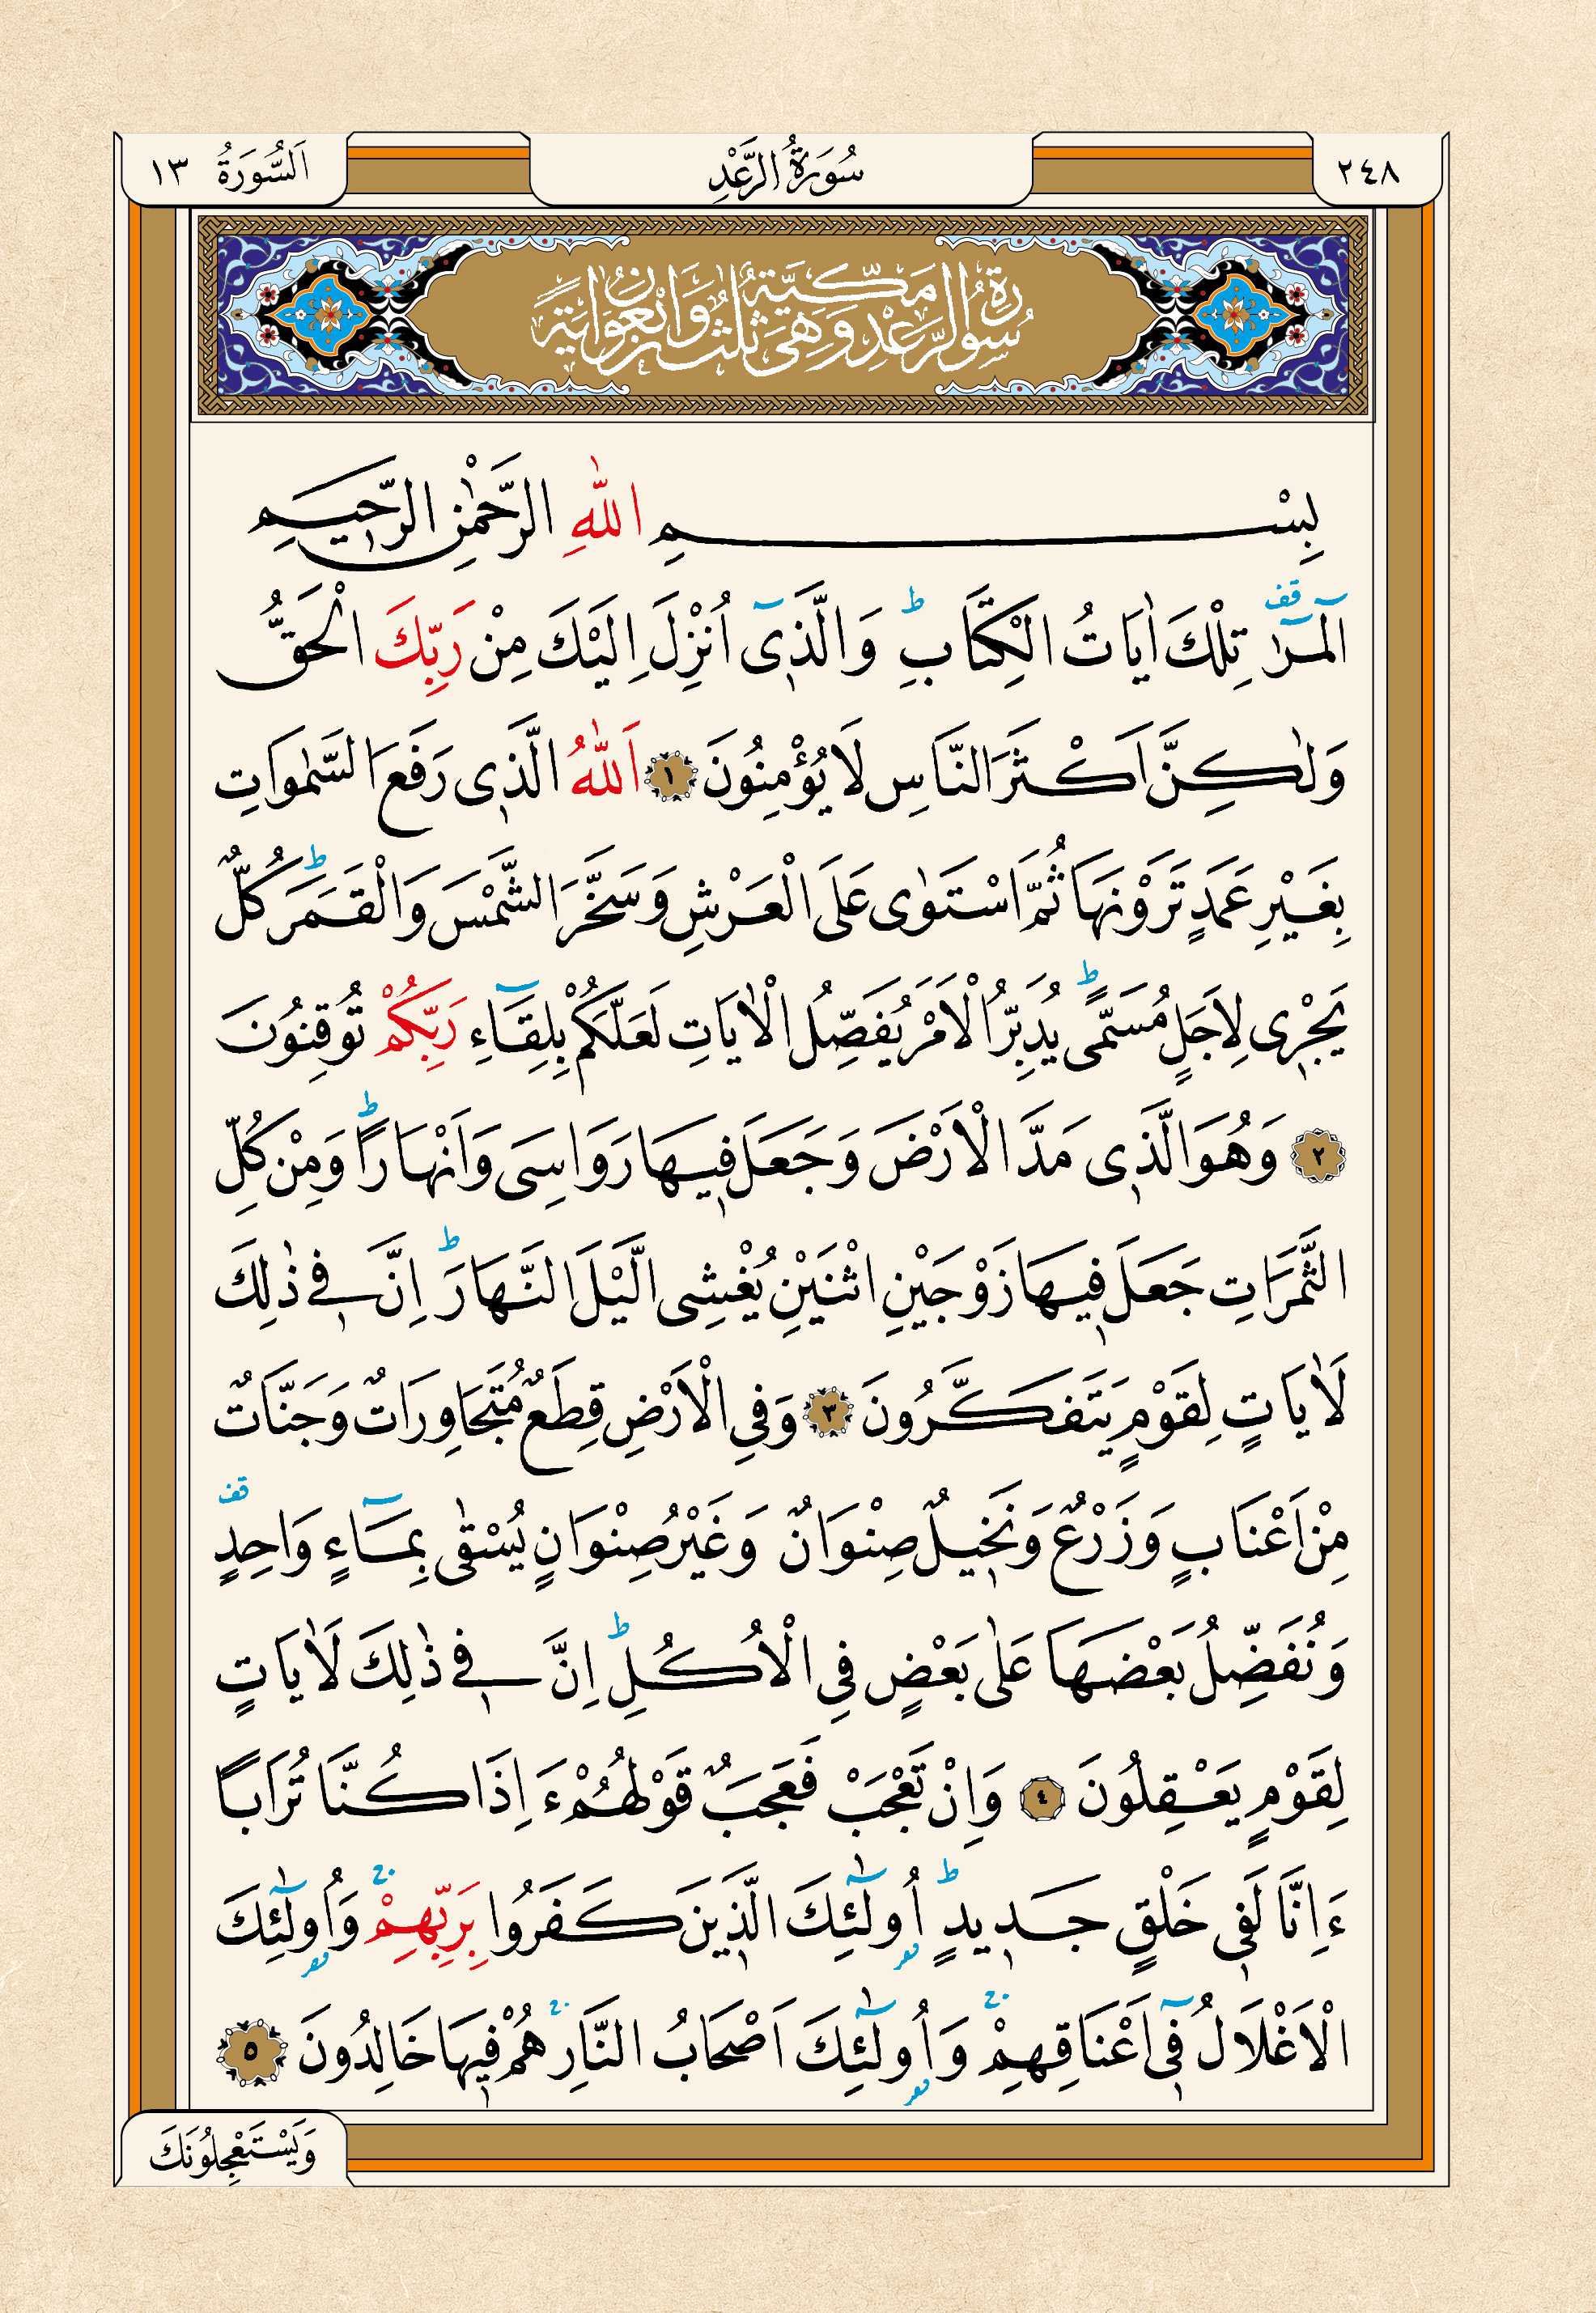 ٢٤٨ سُورَةُ الرَّعْدِ اَلسُّورَةُ ١٣
سُورَةُ الرَّعْدِ مَكِّيَّةٌ وَهِيَ ثَلٰثٌ وَاَرْبَعُونَ اٰيَةً
بِسْمِ اللّٰهِ الرَّحْمٰنِ الرَّح۪يمِ
الٓمٓرٰ۠ قف تِلْكَ اٰيَاتُ الْكِتَابِۜ ط وَالَّذ۪ٓي اُنْزِلَ اِلَيْكَ مِنْ رَبِّكَ الْحَقُّ
وَلٰكِنَّ اَكْثَرَ النَّاسِ لَا يُؤْمِنُونَ ١ اَللّٰهُ الَّذ۪ي رَفَعَ السَّمٰوَاتِ
بِغَيْرِ عَمَدٍ تَرَوْنَهَا ثُمَّ اسْتَوٰى عَلَى الْعَرْشِ وَسَخَّرَ الشَّمْسَ وَالْقَمَرَ ط كُلٌّ
يَجْر۪ي لِاَجَلٍ مُسَمًّى ط يُدَبِّرُ الْاَمْرَ يُفَصِّلُ الْاٰيَاتِ لَعَلَّكُمْ بِلِقَٓاءِ رَبِّكُمْ تُوقِنُونَ
٢ وَهُوَ الَّذ۪ي مَدَّ الْاَرْضَ وَجَعَلَ ف۪يهَا رَوَاسِيَ وَاَنْهَاراً ط وَمِنْ كُلِّ
الثَّمَرَاتِ جَعَلَ ف۪يهَا زَوْجَيْنِ اثْنَيْنِ يُغْشِي الَّيْلَ النَّهَارَ ط اِنَّ ف۪ي ذٰلِكَ
لَاٰيَاتٍ لِقَوْمٍ يَتَفَكَّرُونَ ٣ وَفِي الْاَرْضِ قِطَعٌ مُتَجَاوِرَاتٌ وَجَنَّاتٌ
مِنْ اَعْنَابٍ وَزَرْعٌ وَنَخ۪يلٌ صِنْوَانٌ وَغَيْرُ صِنْوَانٍ يُسْقٰى بِمَٓاءٍ وَاحِدٍ قف
وَنُفَضِّلُ بَعْضَهَا عَلٰى بَعْضٍ فِي الْاُكُلِ ط اِنَّ ف۪ي ذٰلِكَ لَاٰيَاتٍ
لِقَوْمٍ يَعْقِلُونَ ٤ وَاِنْ تَعْجَبْ فَعَجَبٌ قَوْلُهُمْ ءَاِذَا كُنَّا تُرَاباً
ءَاِنَّا لَف۪ي خَلْقٍ جَد۪يدٍ ط اُو۬لٰٓئِكَ الَّذ۪ينَ كَفَرُوا بِرَبِّهِمْۚ وَاُو۬لٰٓئِكَ
الْاَغْلَالُ ف۪ٓي اَعْنَاقِهِمْۚ وَاُو۬لٰٓئِكَ اَصْحَابُ النَّارِۚ هُمْ ف۪يهَا خَالِدُونَ ٥
وَيَسْتَعْجِلُونَكَ